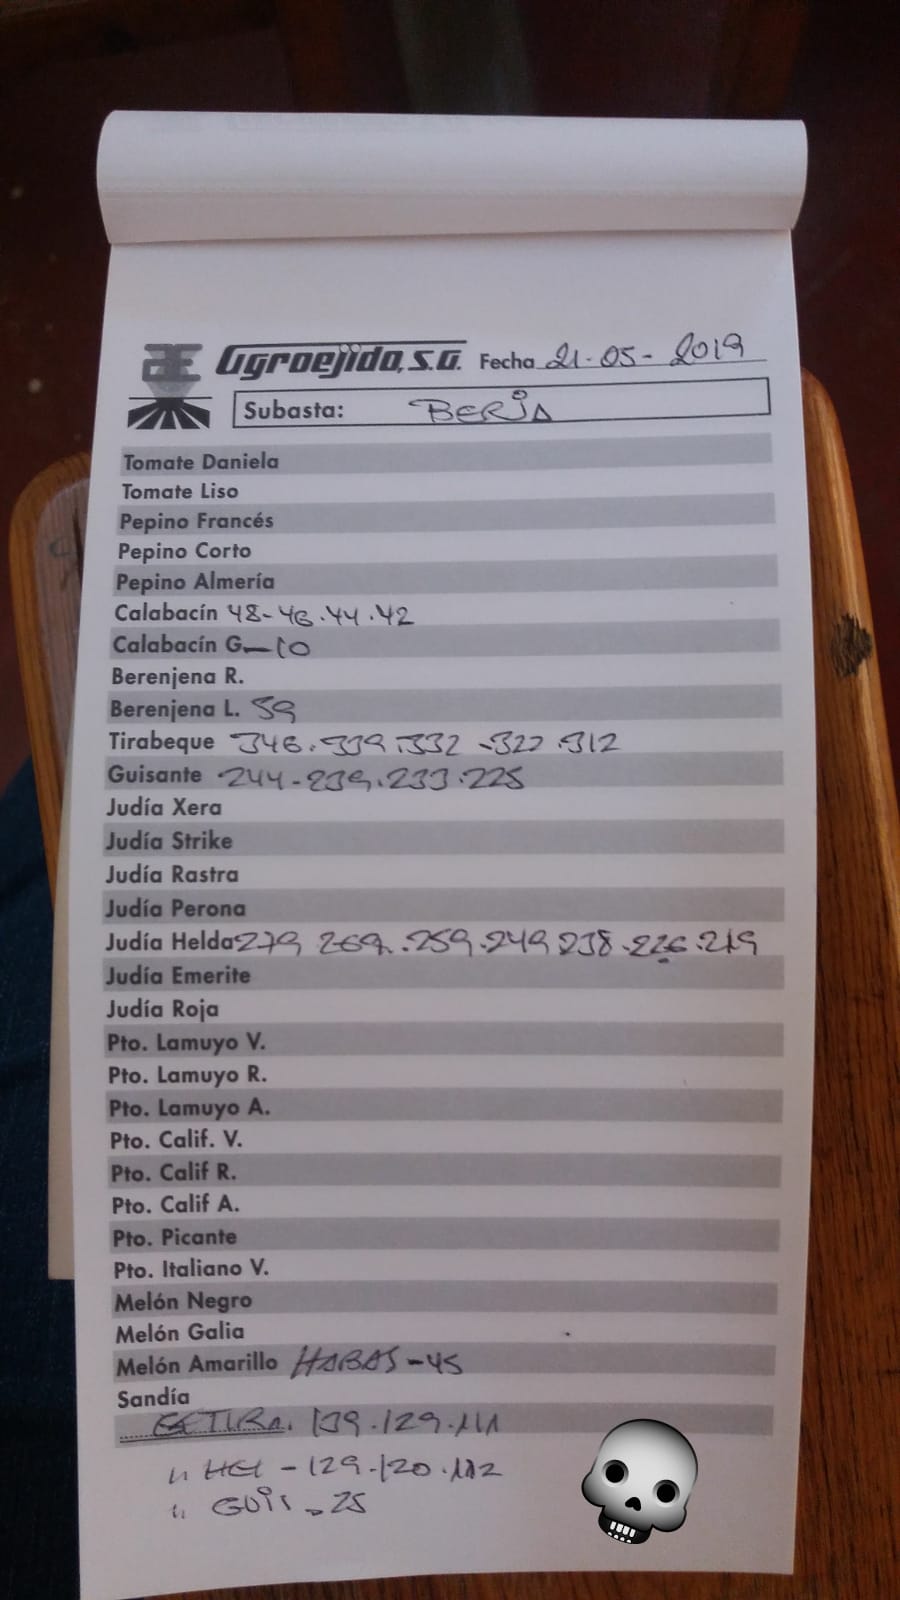 Agroejido, S.A. Fecha 21-05-2019
Subasta: BERJA
Tomate Daniela
Tomate Liso
Pepino Francés
Pepino Corto
Pepino Almería
Calabacín 48-46.44.42
Calabacín G-10
Berenjena R.
Berenjena L. 59
Tirabeque 346.339.332-322.312
Guisante 244-239.233.225
Judía Xera
Judía Strike
Judía Rastra
Judía Perona
Judía Helda 279 269.259.249 238.226.219
Judía Emerite
Judía Roja
Pto. Lamuyo V.
Pto. Lamuyo R.
Pto. Lamuyo A.
Pto. Calif. V.
Pto. Calif R.
Pto. Calif A.
Pto. Picante
Pto. Italiano V.
Melón Negro
Melón Galia
Melón Amarillo HABAS-45
Sandía
139.129.111
" HEL-129.120.112
" GUIS-25